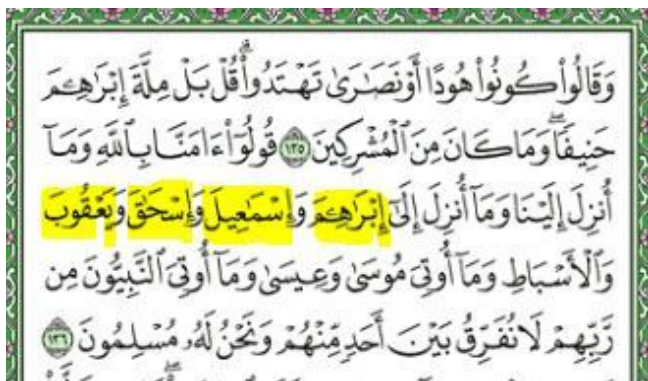 وَقَالُوا۟ كُونُوا۟ هُودًا أَوْ نَصَـٰرَىٰ تَهْتَدُوا۟ ۗ قُلْ بَلْ مِلَّةَ إِبْرَٰهِـۧمَ
حَنِيفًا ۖ وَمَا كَانَ مِنَ ٱلْمُشْرِكِينَ ١٣٥ قُولُوٓا۟ ءَامَنَّا بِٱللَّهِ وَمَآ
أُنزِلَ إِلَيْنَا وَمَآ أُنزِلَ إِلَىٰٓ إِبْرَٰهِـۧمَ وَإِسْمَـٰعِيلَ وَإِسْحَـٰقَ وَيَعْقُوبَ
وَٱلْأَسْبَاطِ وَمَآ أُوتِىَ مُوسَىٰ وَعِيسَىٰ وَمَآ أُوتِىَ ٱلنَّبِيُّونَ مِن
رَّبِّهِمْ لَا نُفَرِّقُ بَيْنَ أَحَدٍ مِّنْهُمْ وَنَحْنُ لَهُۥ مُسْلِمُونَ ١٣٦